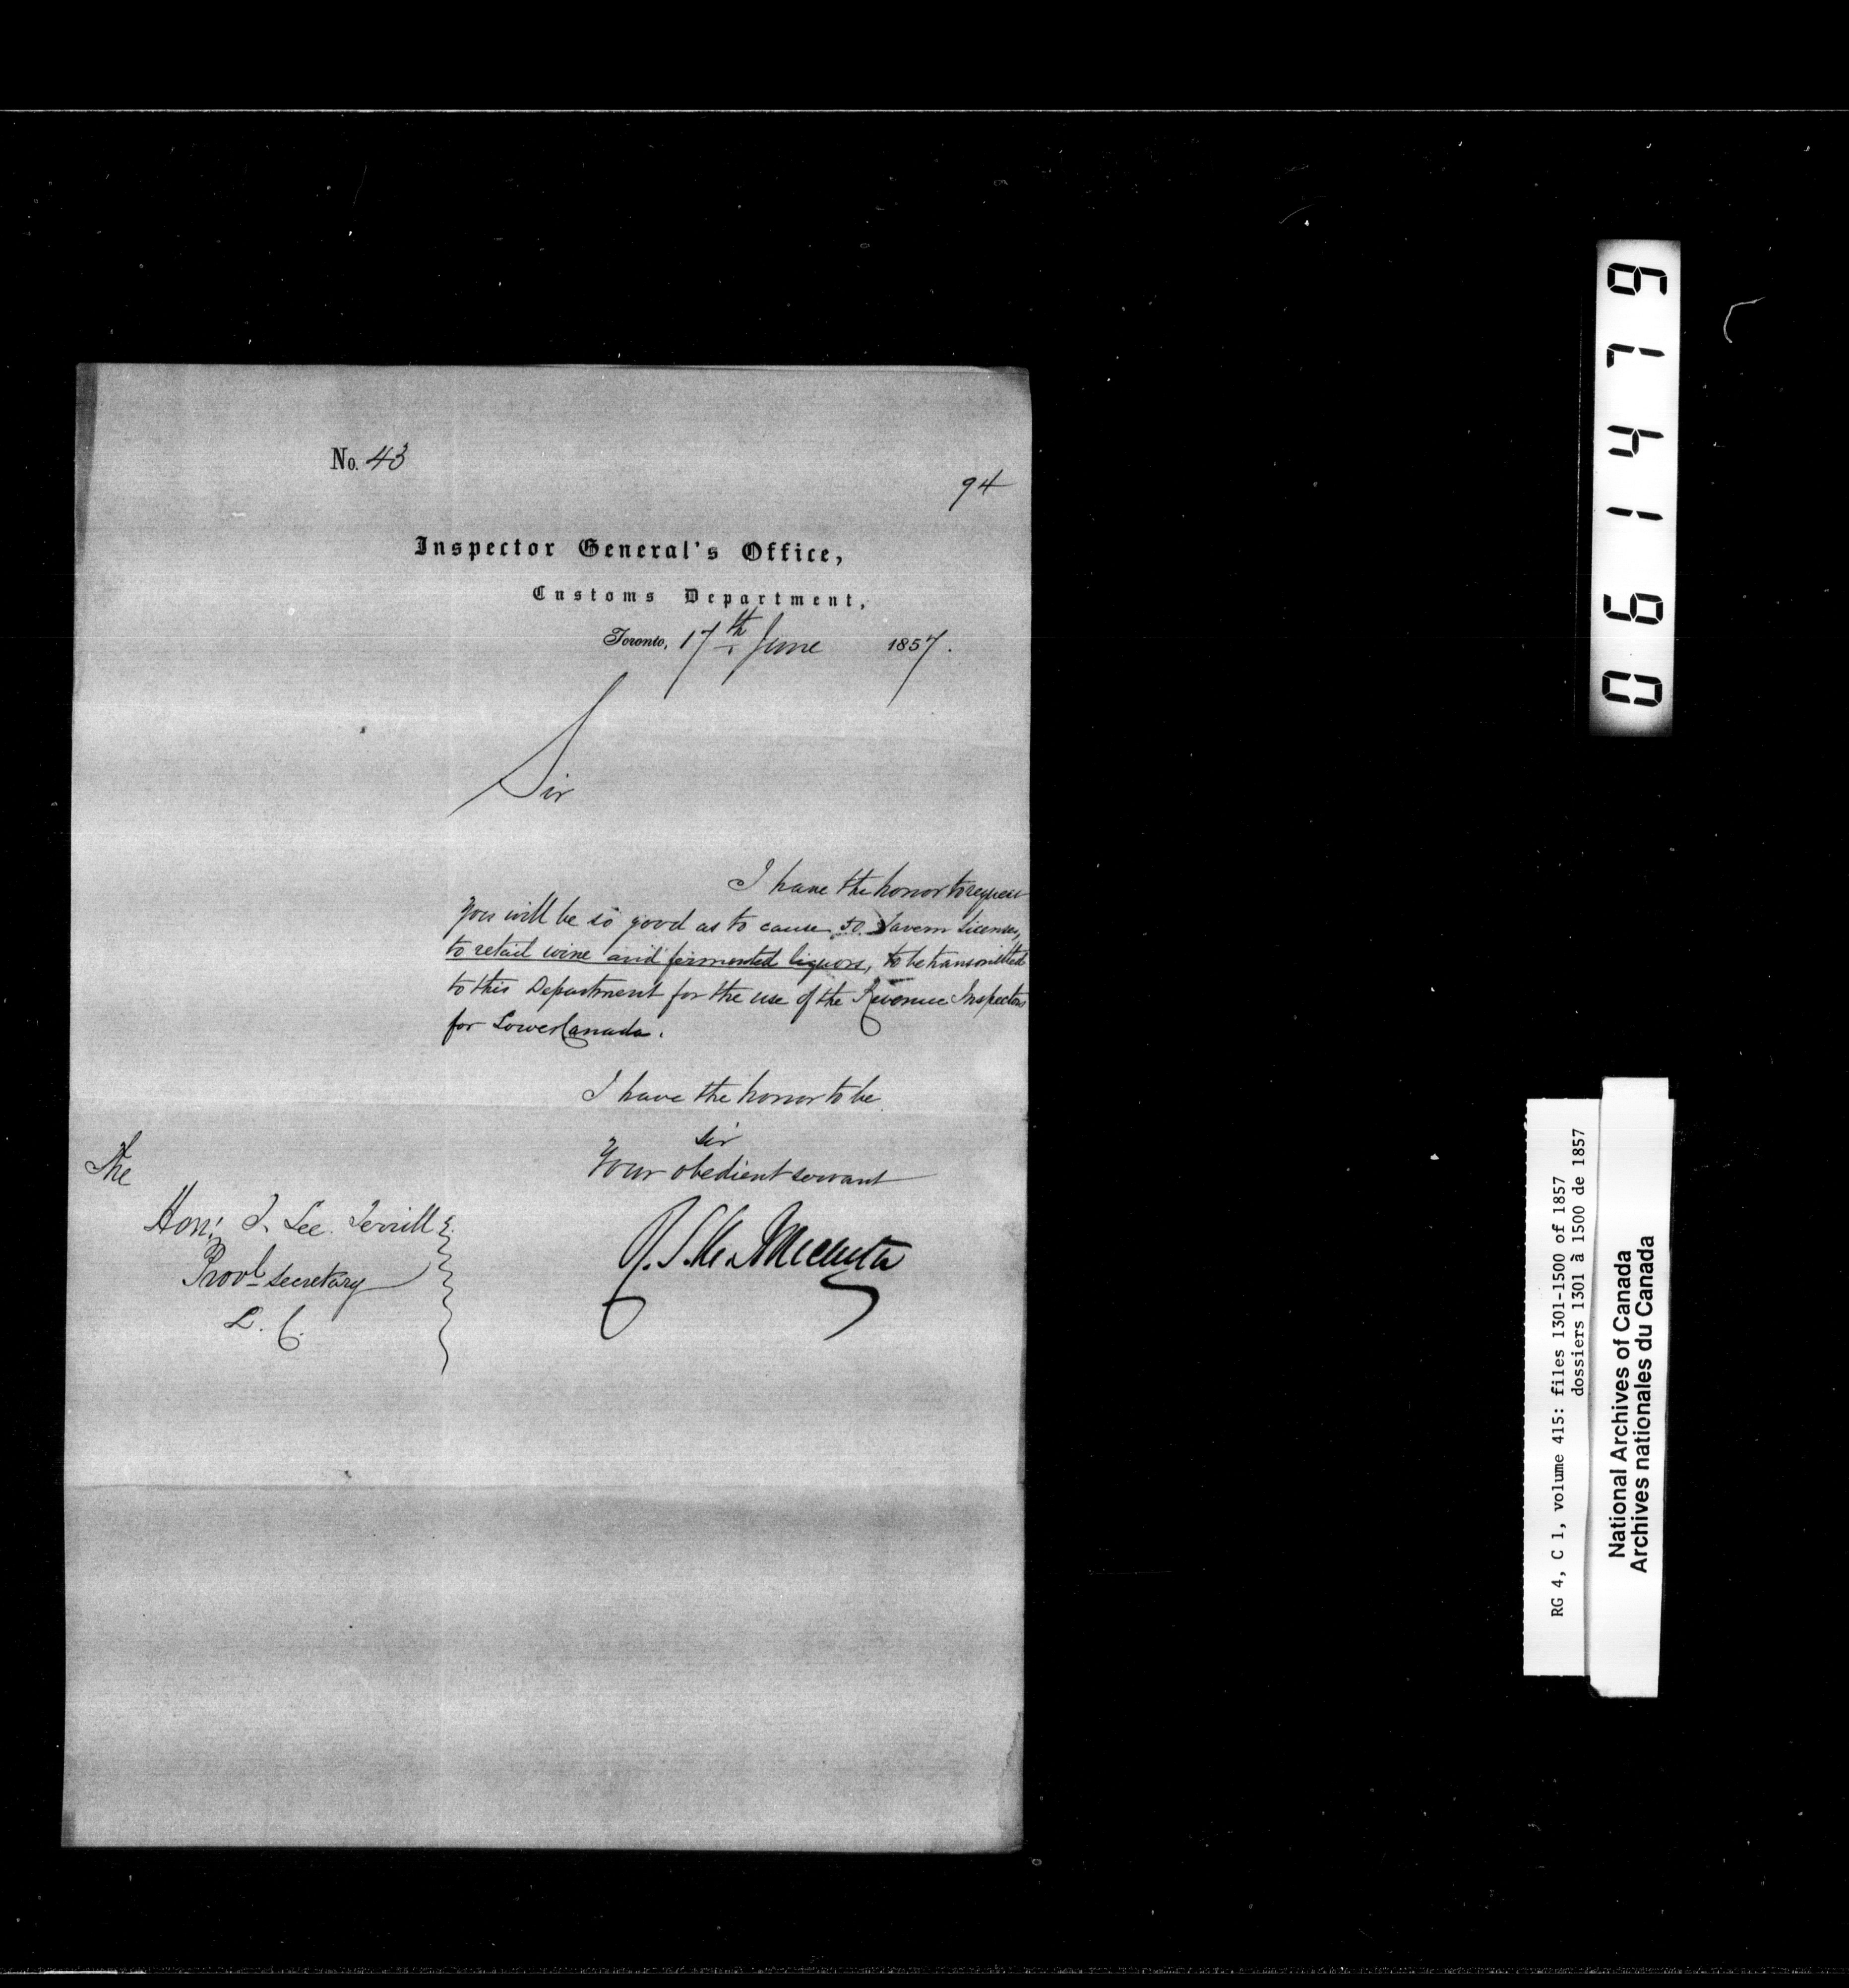 No. 43
94
Inspector General's Office,
Customs Department,
Toronto, 17th June 1857.
Sir
I have the honor to request
you will be so good as to cause 50 Tavern Licenses,
to retail wine and fermented liquors, to be transmitted
to this Department for the use of the Revenue Inspectors
for Lower Canada.
I have the honor to be
Sir
Your obedient servant
The
Hon: T. Lee Terrill
Provl Secretary
L. C.
R. S. M.
061479
RG 4, C 1, volume 415: files 1301-1500 of 1857
dossiers 1301 à 1500 de 1857
National Archives of Canada
Archives nationales du Canada